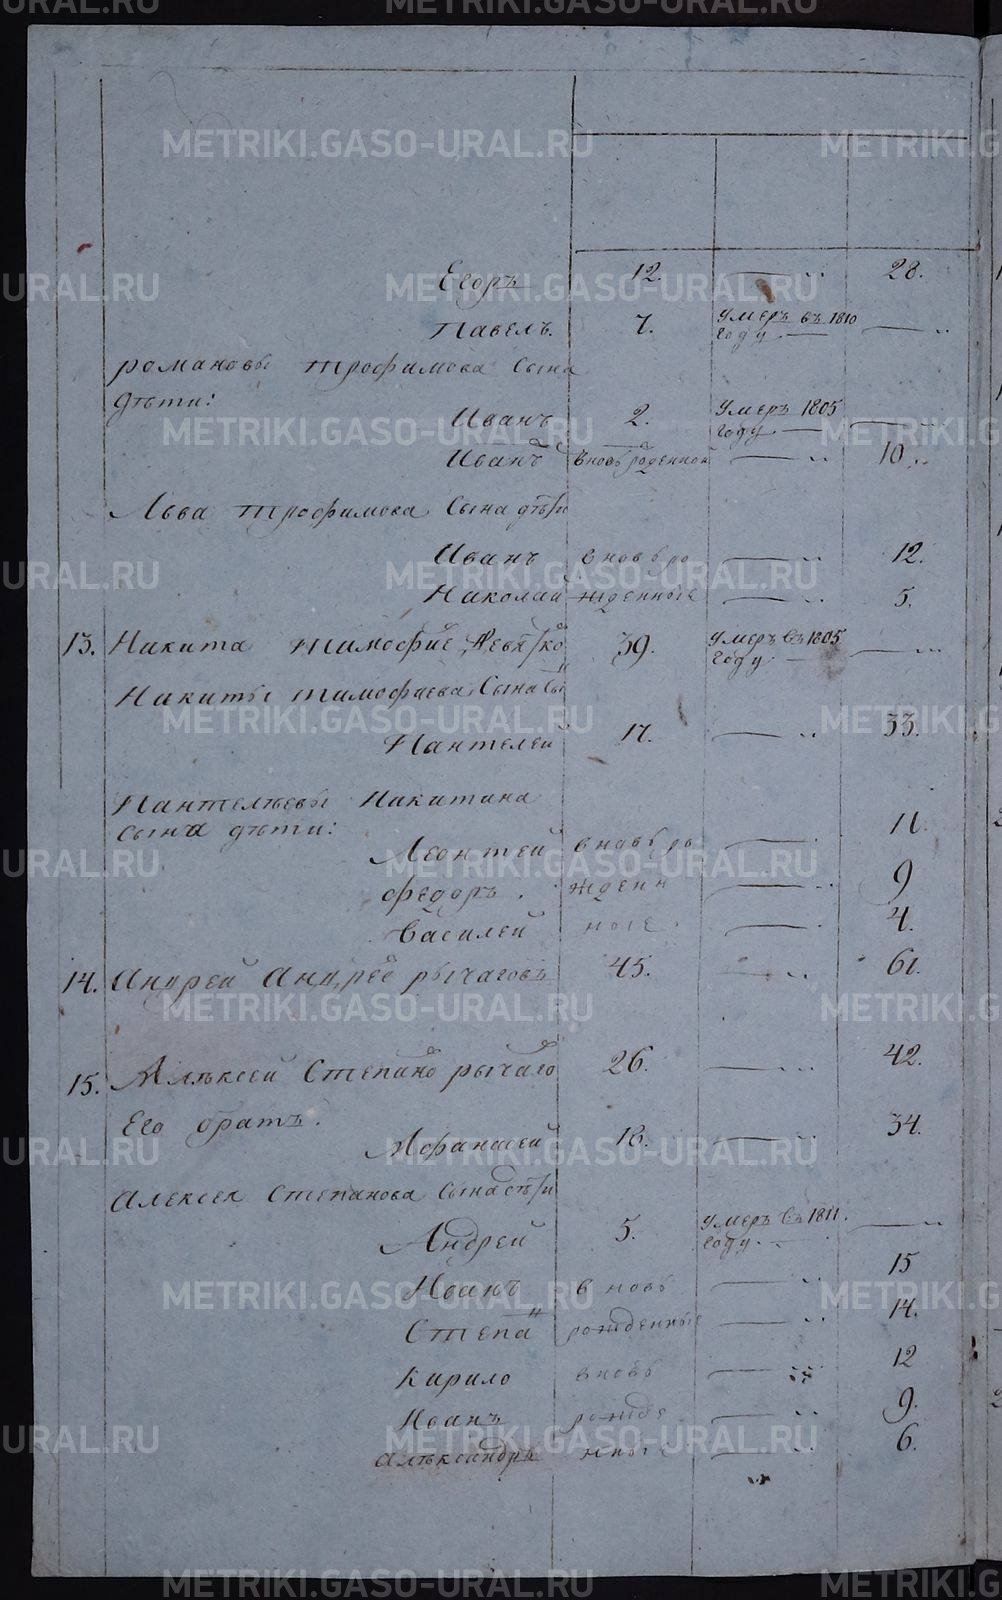 Егоръ 12. 28.
Павелъ. 7. умеръ въ 1810
году
романовы трофимова сына
дѣти:
Иванъ 2. умеръ 1805
году
Иванъ вновь рожденной 10.
Льва трофимова сына дѣти
Иванъ вновь ро 12.
Николай жденные 5.
13. Никита тимофие 39. умеръ въ 1805
году
Никиты тимофаева сына сы
Пантелей 17. 33.
Пантелѣевы Никитина
сына дѣти:
Леонтей вновь ро 11.
федоръ. жденн 9
Василей ные. 4.
14. Андрей Андрее рычаговъ 45. 61.
15. Алѣксей Степано рычаго 26. 42.
Его братъ.
Афанасей 18. 34.
Алексея Степанова сына дѣти
Андрей 5. умеръ въ 1811.
году.
Иванъ вновь 15
Степан рожденные 14.
Кирило вновь 12
Иванъ рожде 9.
Алѣксандръ нные 6.
METRIKI.GASO-URAL.RU